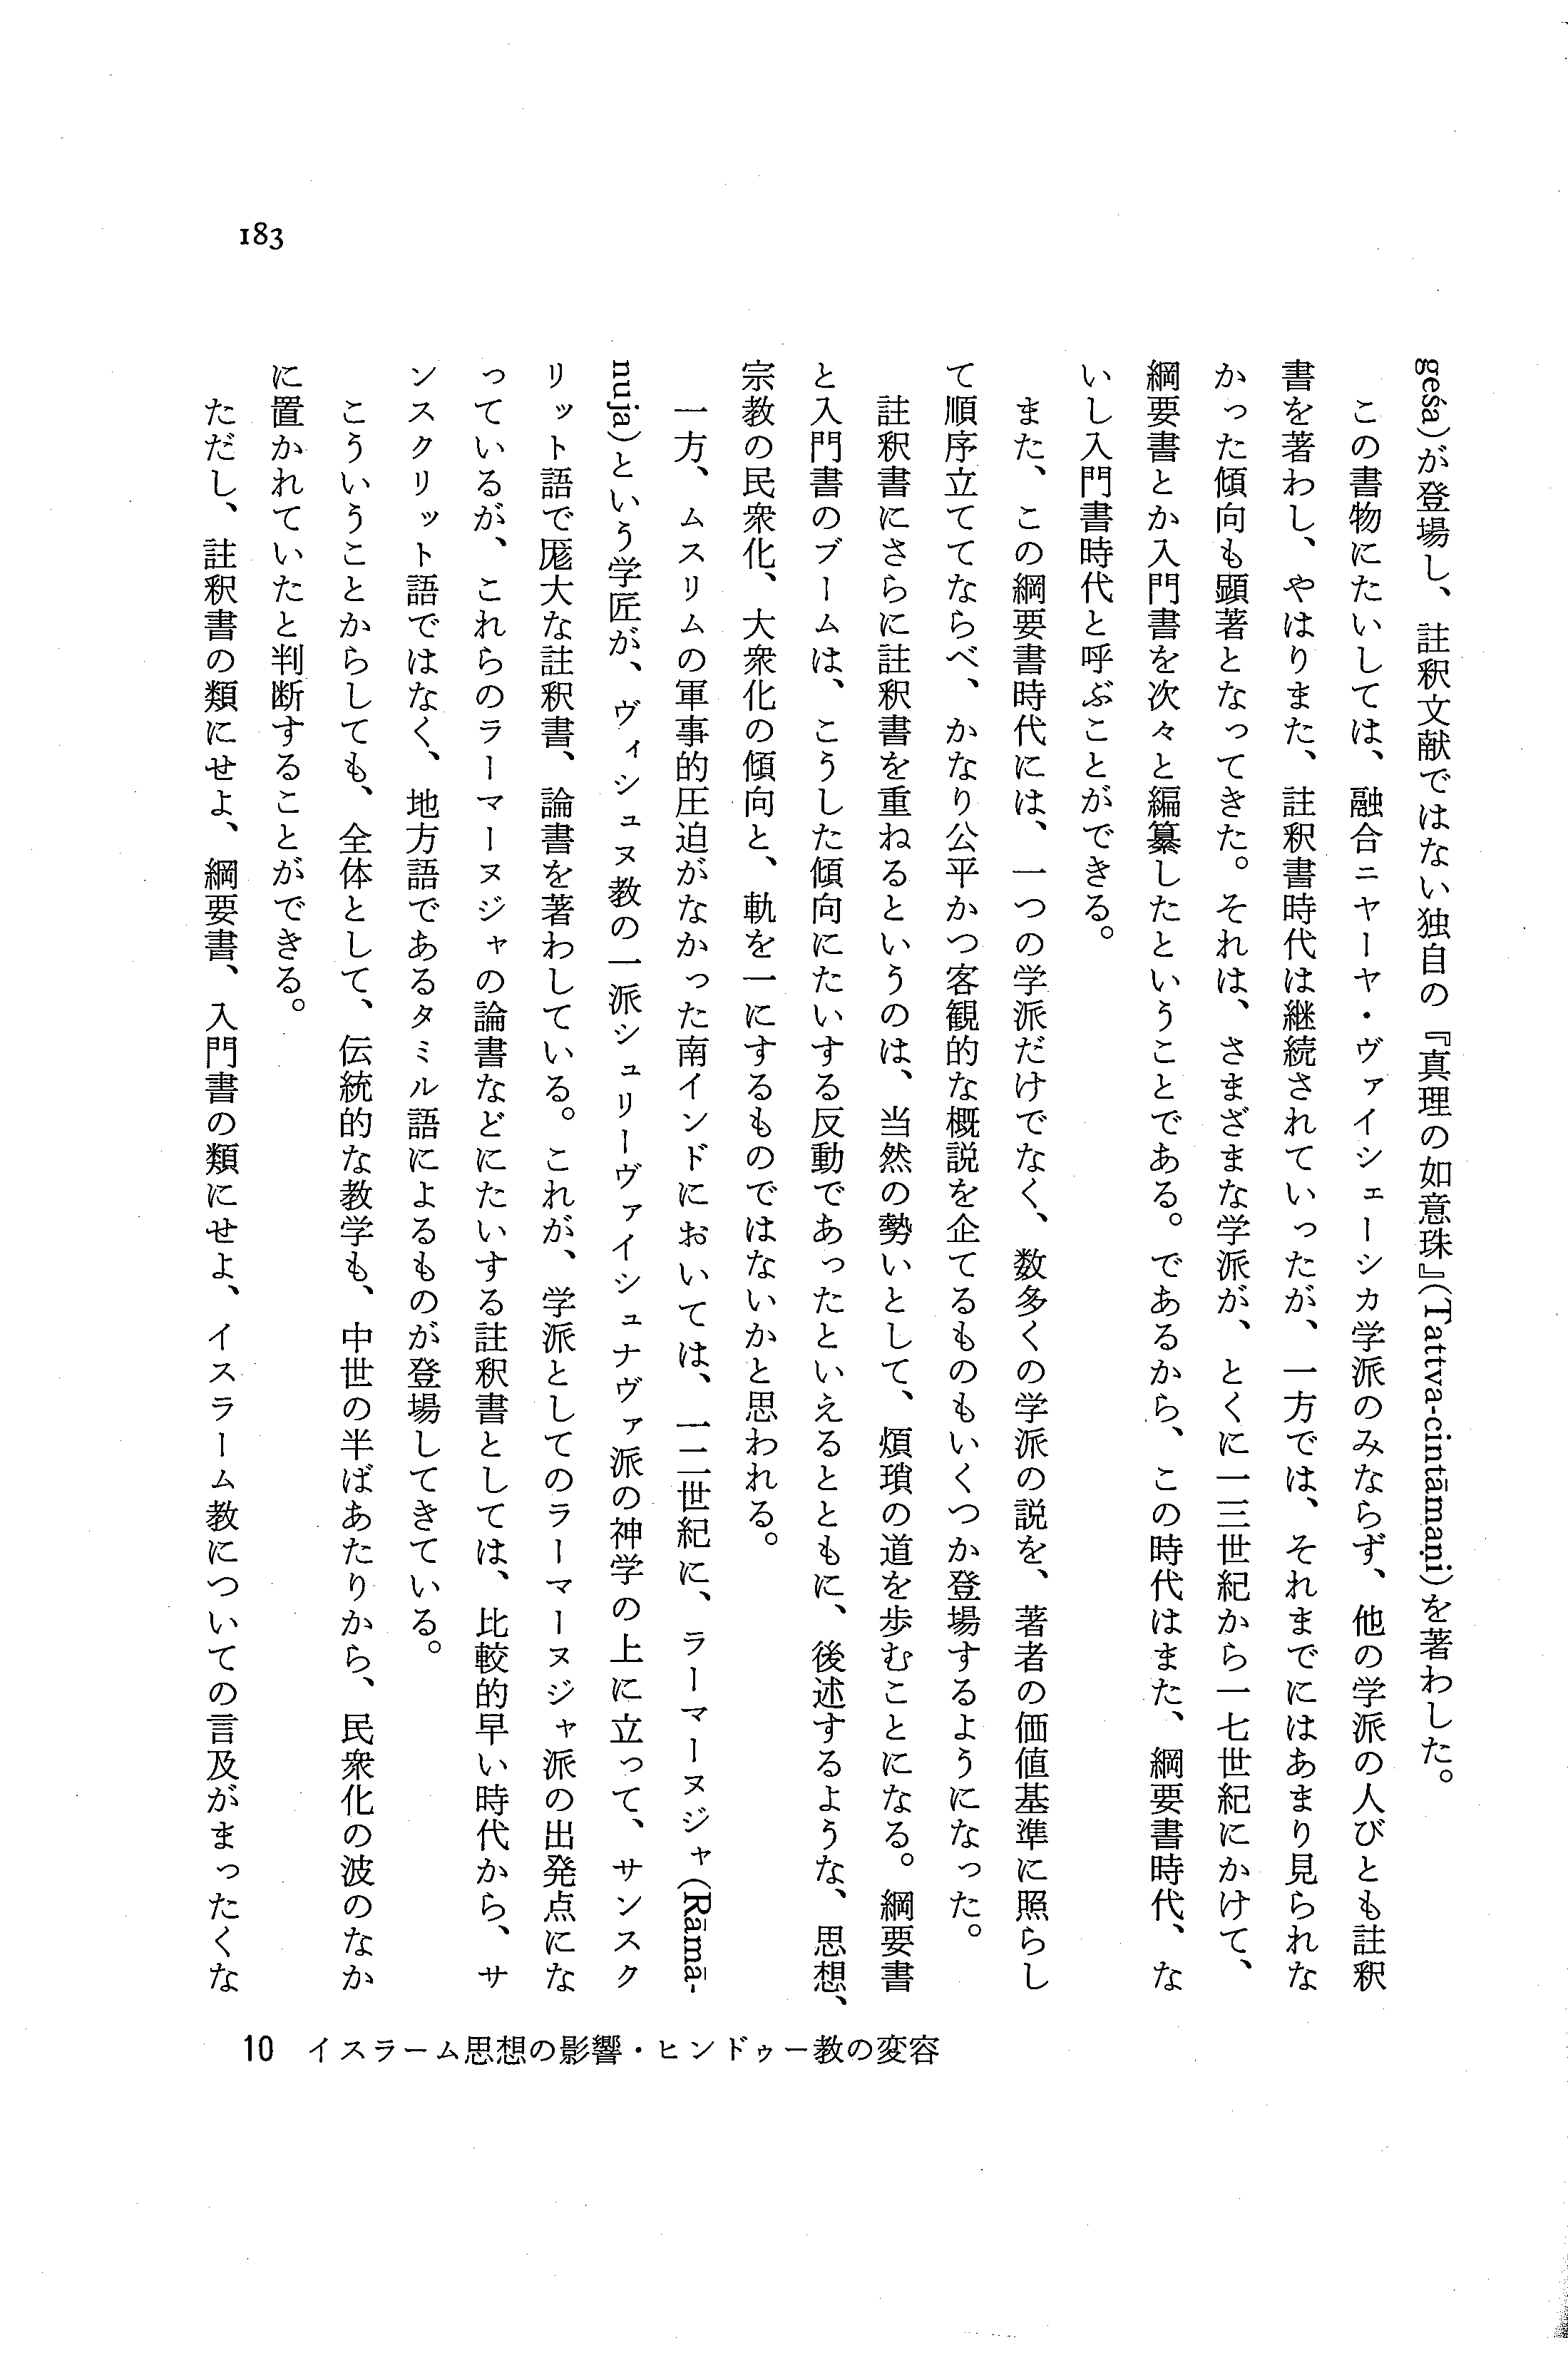 183
geśa)が登場し、註釈文献ではない独自の『真理の如意珠』(Tattva-cintāmaṇi)を著わした。
この書物にたいしては、融合ニヤーヤ・ヴァイシェーシカ学派のみならず、他の学派の人びとも註釈
書を著わし、やはりまた、註釈書時代は継続されていったが、一方では、それまでにはあまり見られな
かった傾向も顕著となってきた。それは、さまざまな学派が、とくに一三世紀から一七世紀にかけて、
綱要書とか入門書を次々と編纂したということである。であるから、この時代はまた、綱要書時代、な
いし入門書時代と呼ぶことができる。
また、この綱要書時代には、一つの学派だけでなく、数多くの学派の説を、著者の価値基準に照らし
て順序立ててならべ、かなり公平かつ客観的な概説を企てるものもいくつか登場するようになった。
註釈書にさらに註釈書を重ねるというのは、当然の勢いとして、煩瑣の道を歩むことになる。綱要書
と入門書のブームは、こうした傾向にたいする反動であったといえるとともに、後述するような、思想、
宗教の民衆化、大衆化の傾向と、軌を一にするものではないかと思われる。
一方、ムスリムの軍事的圧迫がなかった南インドにおいては、一二世紀に、ラーマーヌジャ(Rāmā-
nuja)という学匠が、ヴィシュヌ教の一派シュリーヴァイシュナヴァ派の神学の上に立って、サンスク
リット語で厖大な註釈書、論書を著わしている。これが、学派としてのラーマーヌジャ派の出発点にな
っているが、これらのラーマーヌジャの論書などにたいする註釈書としては、比較的早い時代から、サ
ンスクリット語ではなく、地方語であるタミル語によるものが登場してきている。
こういうことからしても、全体として、伝統的な教学も、中世の半ばあたりから、民衆化の波のなか
に置かれていたと判断することができる。
ただし、註釈書の類にせよ、綱要書、入門書の類にせよ、イスラーム教についての言及がまったくな
10 イスラーム思想の影響・ヒンドゥー教の変容